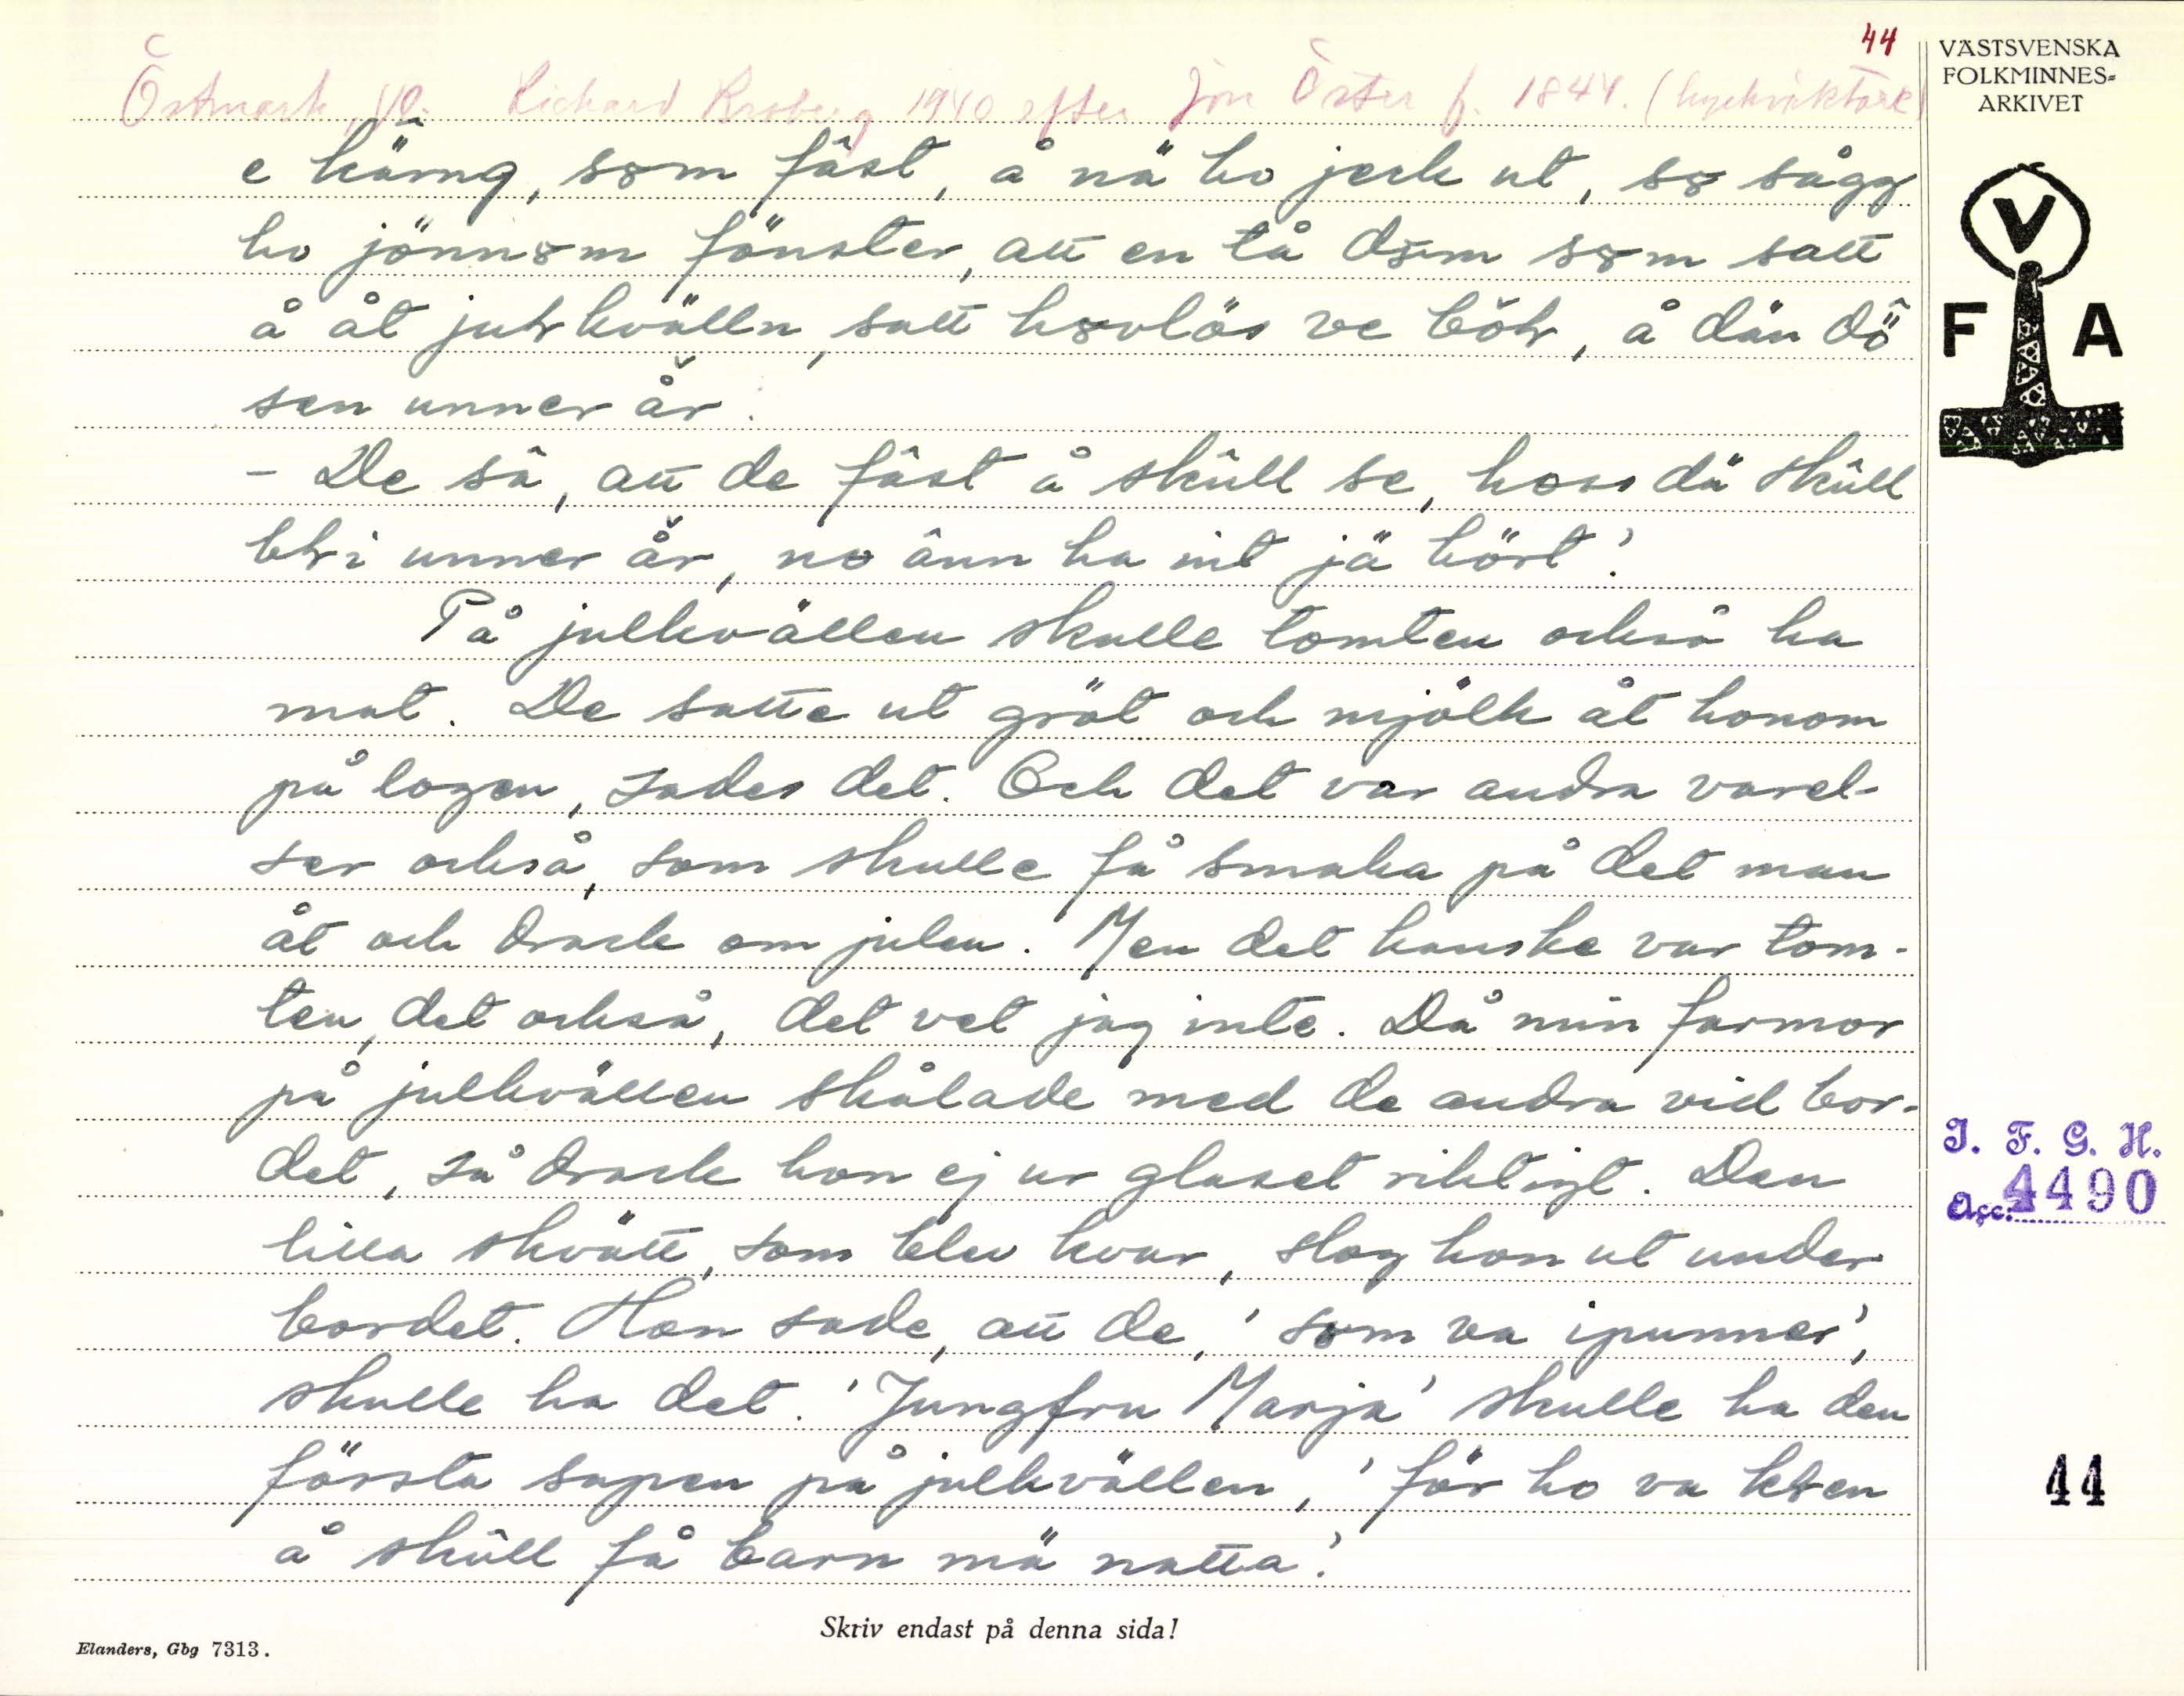 44
Östmark, Vd. Richard Broberg 1940 efter Jon Öster f. 1844.
VÄSTSVENSKA
FOLKMINNES-
ARKIVET
V
F A
e käring, som fast, å nä ho jeck ut, so sågg
ho jönnom fönster, att en tå dom som satt
å åt julkvälln, satt hovlös ve bol, å dän dö
sen unner år.
- De sa, att de fast å skull se, hoss dä skull
bli unner år, no änn ha int jä hört'.
På julkvällen skulle tomten också ha
mat. De satte ut gröt och mjölk åt honom
på logen, sades det. Och det var andra varel-
ser också, som skulle få smaka på det man
åt och drack om julen. Men det kanske var tom-
ten, det också, det vet jag inte. Då min farmor
på julkvällen skålade med de andra vid bor-
det, så drack hon ej ur glaset riktigt. Den
lilla skvätt, som blev kvar, slog hon ut under
bordet. Hon sade, att de, 'som va ipunner',
skulle ha det. 'Jungfru Marja' skulle ha den
första supen på julkvällen, 'för ho va klen
å skull få barn mä natta'.
I. F. G. H.
Acc. 4490
44
Skriv endast på denna sida!
Elanders, Gbg 7313.